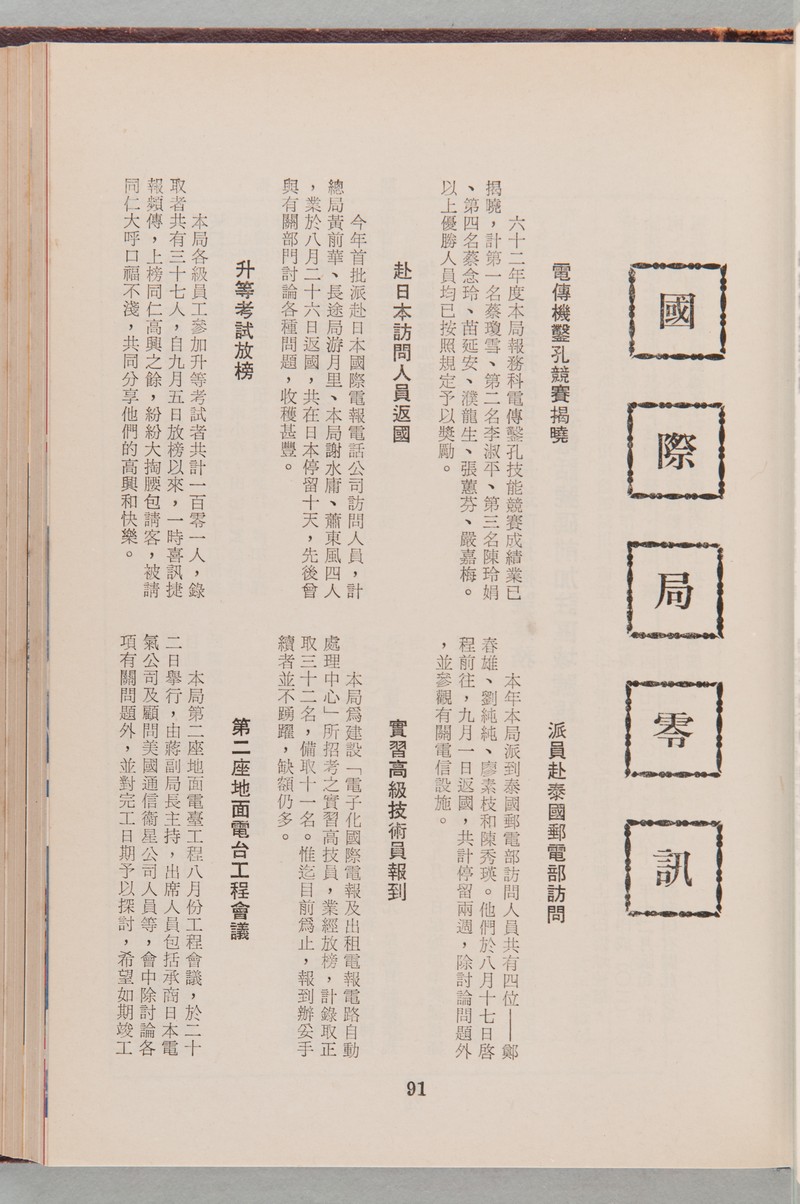 國際局零訊
電傳機鑿孔競賽揭曉
六十二年度本局報務科電傳鑿孔技能競賽成績業已
揭曉，計第一名蔡瓊雪、第二名李淑平、第三名陳玲娟
、第四名蔡念玲、苗延安、濮龍生、張蕙芬、嚴嘉梅。
以上優勝人員均已按照規定予以獎勵。
赴日本訪問人員返國
今年首批派赴日本國際電報電話公司訪問人員，計
總局黃前華、長途局游月里、本局謝水庸、蕭東風四人
，業於八月二十六日返國，共在日本停留十天，先後曾
與有關部門討論各種問題，收穫甚豐。
升等考試放榜
本局各級員工參加升等考試者共計一百零一人，錄
取者共有三十七人，自九月五日放榜以來，一時喜訊捷
報頻傳，上榜同仁高興之餘，紛紛大掏腰包請客，被請
同仁大呼口福不淺，共同分享他們的高興和快樂。
派員赴泰國郵電部訪問
本年本局派到泰國郵電部訪問人員共有四位——鄭
春雄、劉純純、廖素枝和陳秀瑛。他們於八月十七日啓
程前往，九月一日返國，共計停留兩週，除討論問題外
，並參觀有關電信設施。
實習高級技術員報到
本局爲建設「電子化國際電報及出租電報電路自動
處理中心」所招考之實習高技員，業經放榜，計錄取正
取三十二名，備取十一名。惟迄目前爲止，報到辦妥手
續者並不踴躍，缺額仍多。
第二座地面電台工程會議
本局第二座地面電臺工程八月份工程會議，於二十
二日舉行，由蔣副局長主持，出席人員包括承商日本電
氣公司及顧問美國通信衛星公司人員等，會中除討論各
項有關問題外，並對完工日期予以探討，希望如期竣工
91